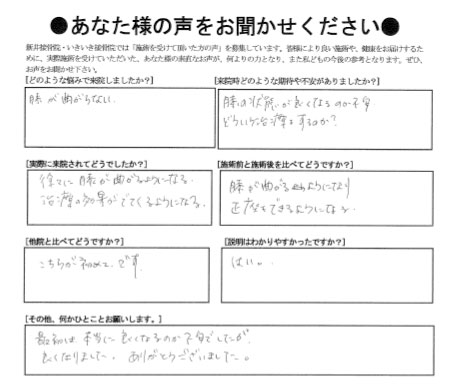 ●あなた様の声をお聞かせください●
新井接骨院・いきいき接骨院では「施術を受けて頂いた方の声」を募集しています。皆様により良い施術や、健康をお届けするため
に、実際施術を受けていただいた、あなた様の素直なお声が、何よりの力となり、また私どもの今後の参考となります。ぜひ、
お声をお聞かせ下さい。
[どのような悩みで来院しましたか?]
膝が曲がらない
[来院時どのような期待や不安がありましたか?]
膝の状態が良くなるのか不安
どういう治療をするのか?
[実際に来院されてどうでしたか?]
徐々に膝が曲がるようになる
治療の効果がでてくるようになる。
[施術前と施術後を比べてどうですか?]
膝が曲がるようになり
正座もできるようになる
[他院と比べてどうですか?]
こちらが初めてです
[説明はわかりやすかったですか?]
はい。
[その他、何かひとことお願いします。]
最初は本当に良くなるのか不安でしたが
良くなりました。ありがとうございました。